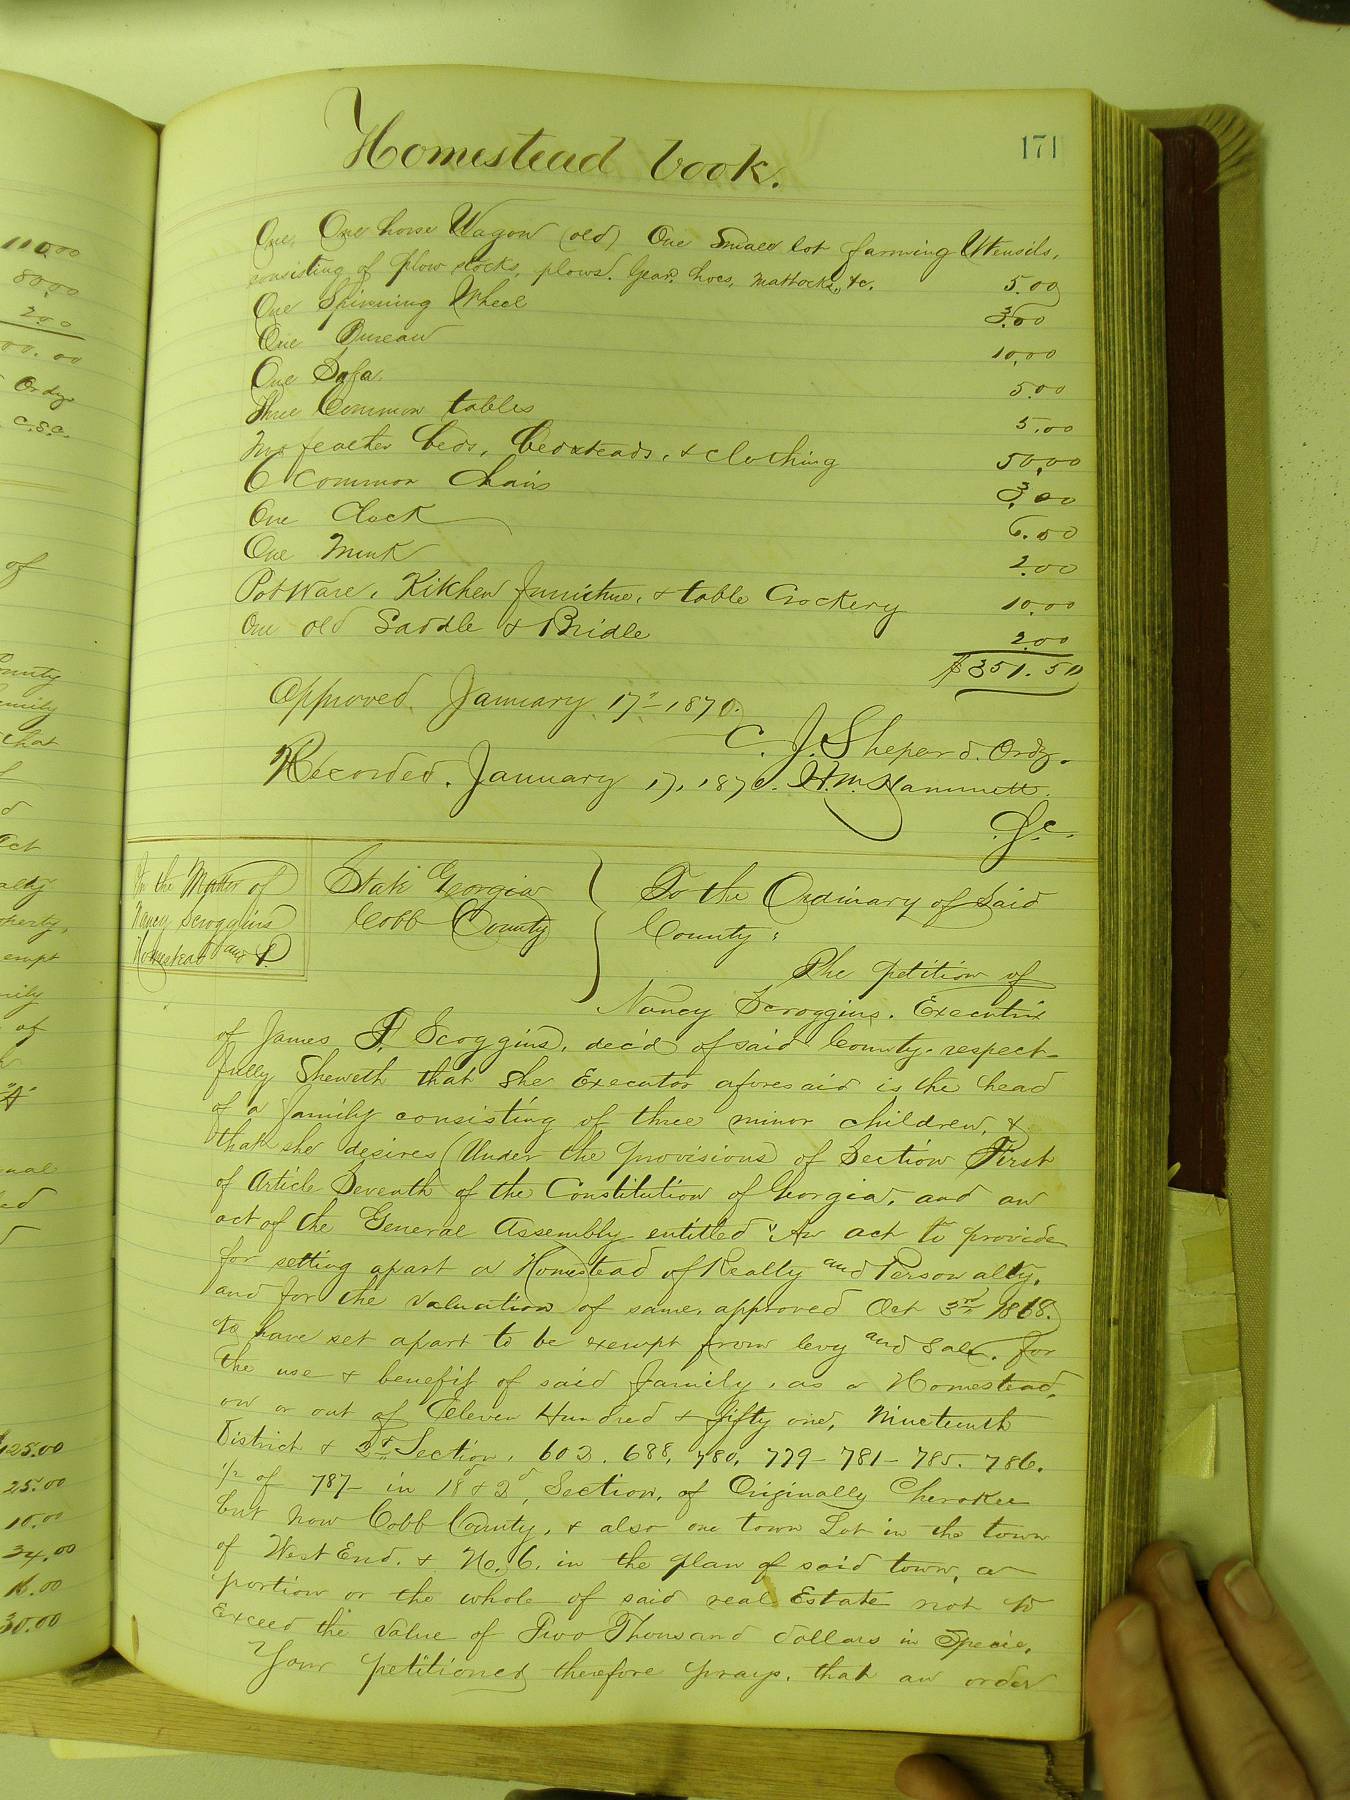 Homestead book.
171
One, One horse Wagon (old) One Small lot farming Utensils,
consisting of plow stocks, plows. Gear. hoes, mattocks, &c. 5.00
One Spinning Wheel 3.00
One Bureau 10.00
One Sofa. 5.00
Three Common tables 5.00
Two feather beds, bedsteads, & clothing 50.00
6 Common Chairs 3.00
One Clock 6.00
One Trunk 2.00
Potware, Kitchen furniture, & table Crockery 10.00
One old Saddle & Bridle 2.00
$351.50
Approved. January 17th 1870.
C. J. Shepard. Ordy.
Recorded. January 17, 1870. H. M. Hammett.
D.c.
In the Matter of
Nancy Scroggins
Homestead and P.
State Georgia
Cobb County
To the Ordinary of Said
County:
The petition of
Nancy Scroggins. Executrix
of James F. Scoggins, dec'd of said County. respect-
fully Sheweth that She Executor aforesaid is the head
of a family consisting of three minor children, &
that she desires (Under the provisions) of Section First
of Article Seventh of the Constitution of Georgia, and an
act of the General Assembly entitled "An act to provide
for setting apart a Homestead of Realty and Personalty,
and for the valuation of same, approved Oct 3rd 1868.
to have set apart to be exempt from levy and sale. for
the use & benefit of said family, as a Homestead,
on or out of Eleven Hundred & fifty one, Nineteenth
District & 2d Section, 603. 688, 780, 779- 781- 785. 786.
1/2 of 787- in 18 & 2d, Section, of Originally Cherokee
but now Cobb County, & also one town Lot in the town
of West End. & No. 6. in the plan of said town, a
portion or the whole of said real Estate not to
Exceed the value of Two Thousand dollars in Specie.
Your petitioner therefore prays, that an order
110.00
80.00
2.00
00.00
Ordy
C.S.C.
of
County
family
that
d
act
alty
perty,
empt
mily
of
"A"
onal
ed
125.00
25.00
10.00
34.00
16.00
30.00